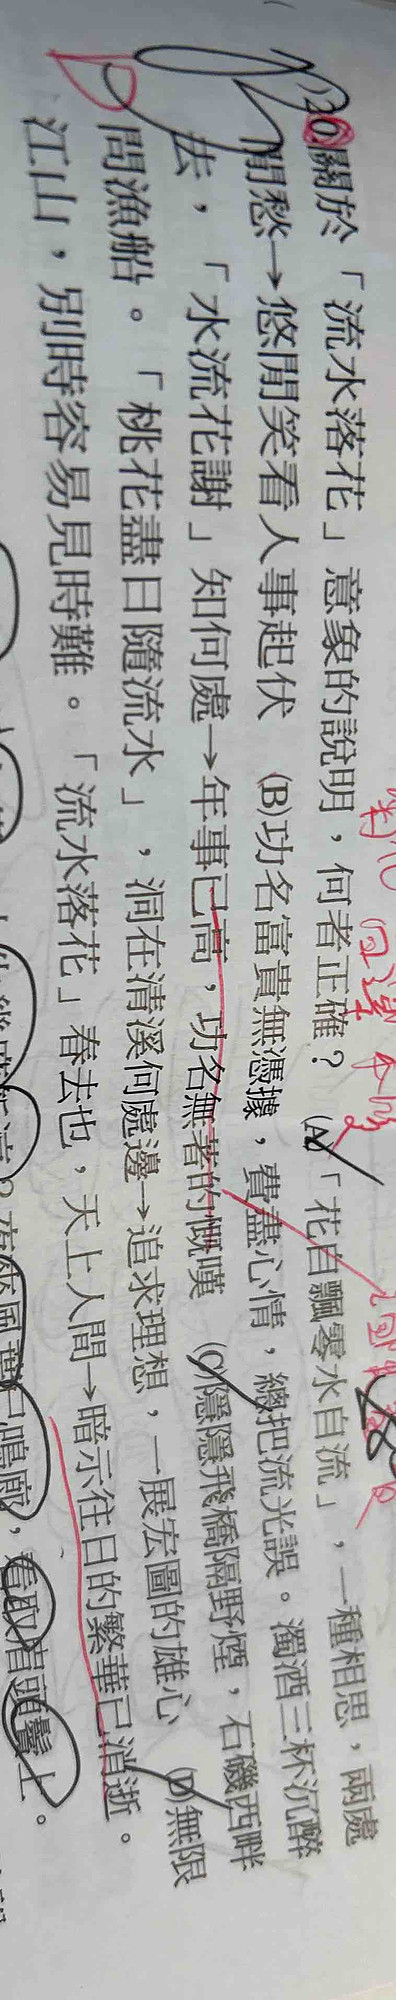 20.關於「流水落花」意象的說明，何者正確？(A)「花自飄零水自流」，一種相思，兩處
閒愁→悠閒笑看人事起伏 (B)功名富貴無憑據，費盡心情，總把流光誤。濁酒三杯沉醉
去，「水流花謝」知何處→年事已高，功名無著的慨嘆 (C)隱隱飛橋隔野煙，石磯西畔
問漁船。「桃花盡日隨流水」，洞在清溪何處邊→追求理想，一展宏圖的雄心 (D)無限
江山，別時容易見時難。「流水落花」春去也，天上人間→暗示往日的繁華已消逝。
夜來風葉已鳴廊，看取眉頭鬢上。